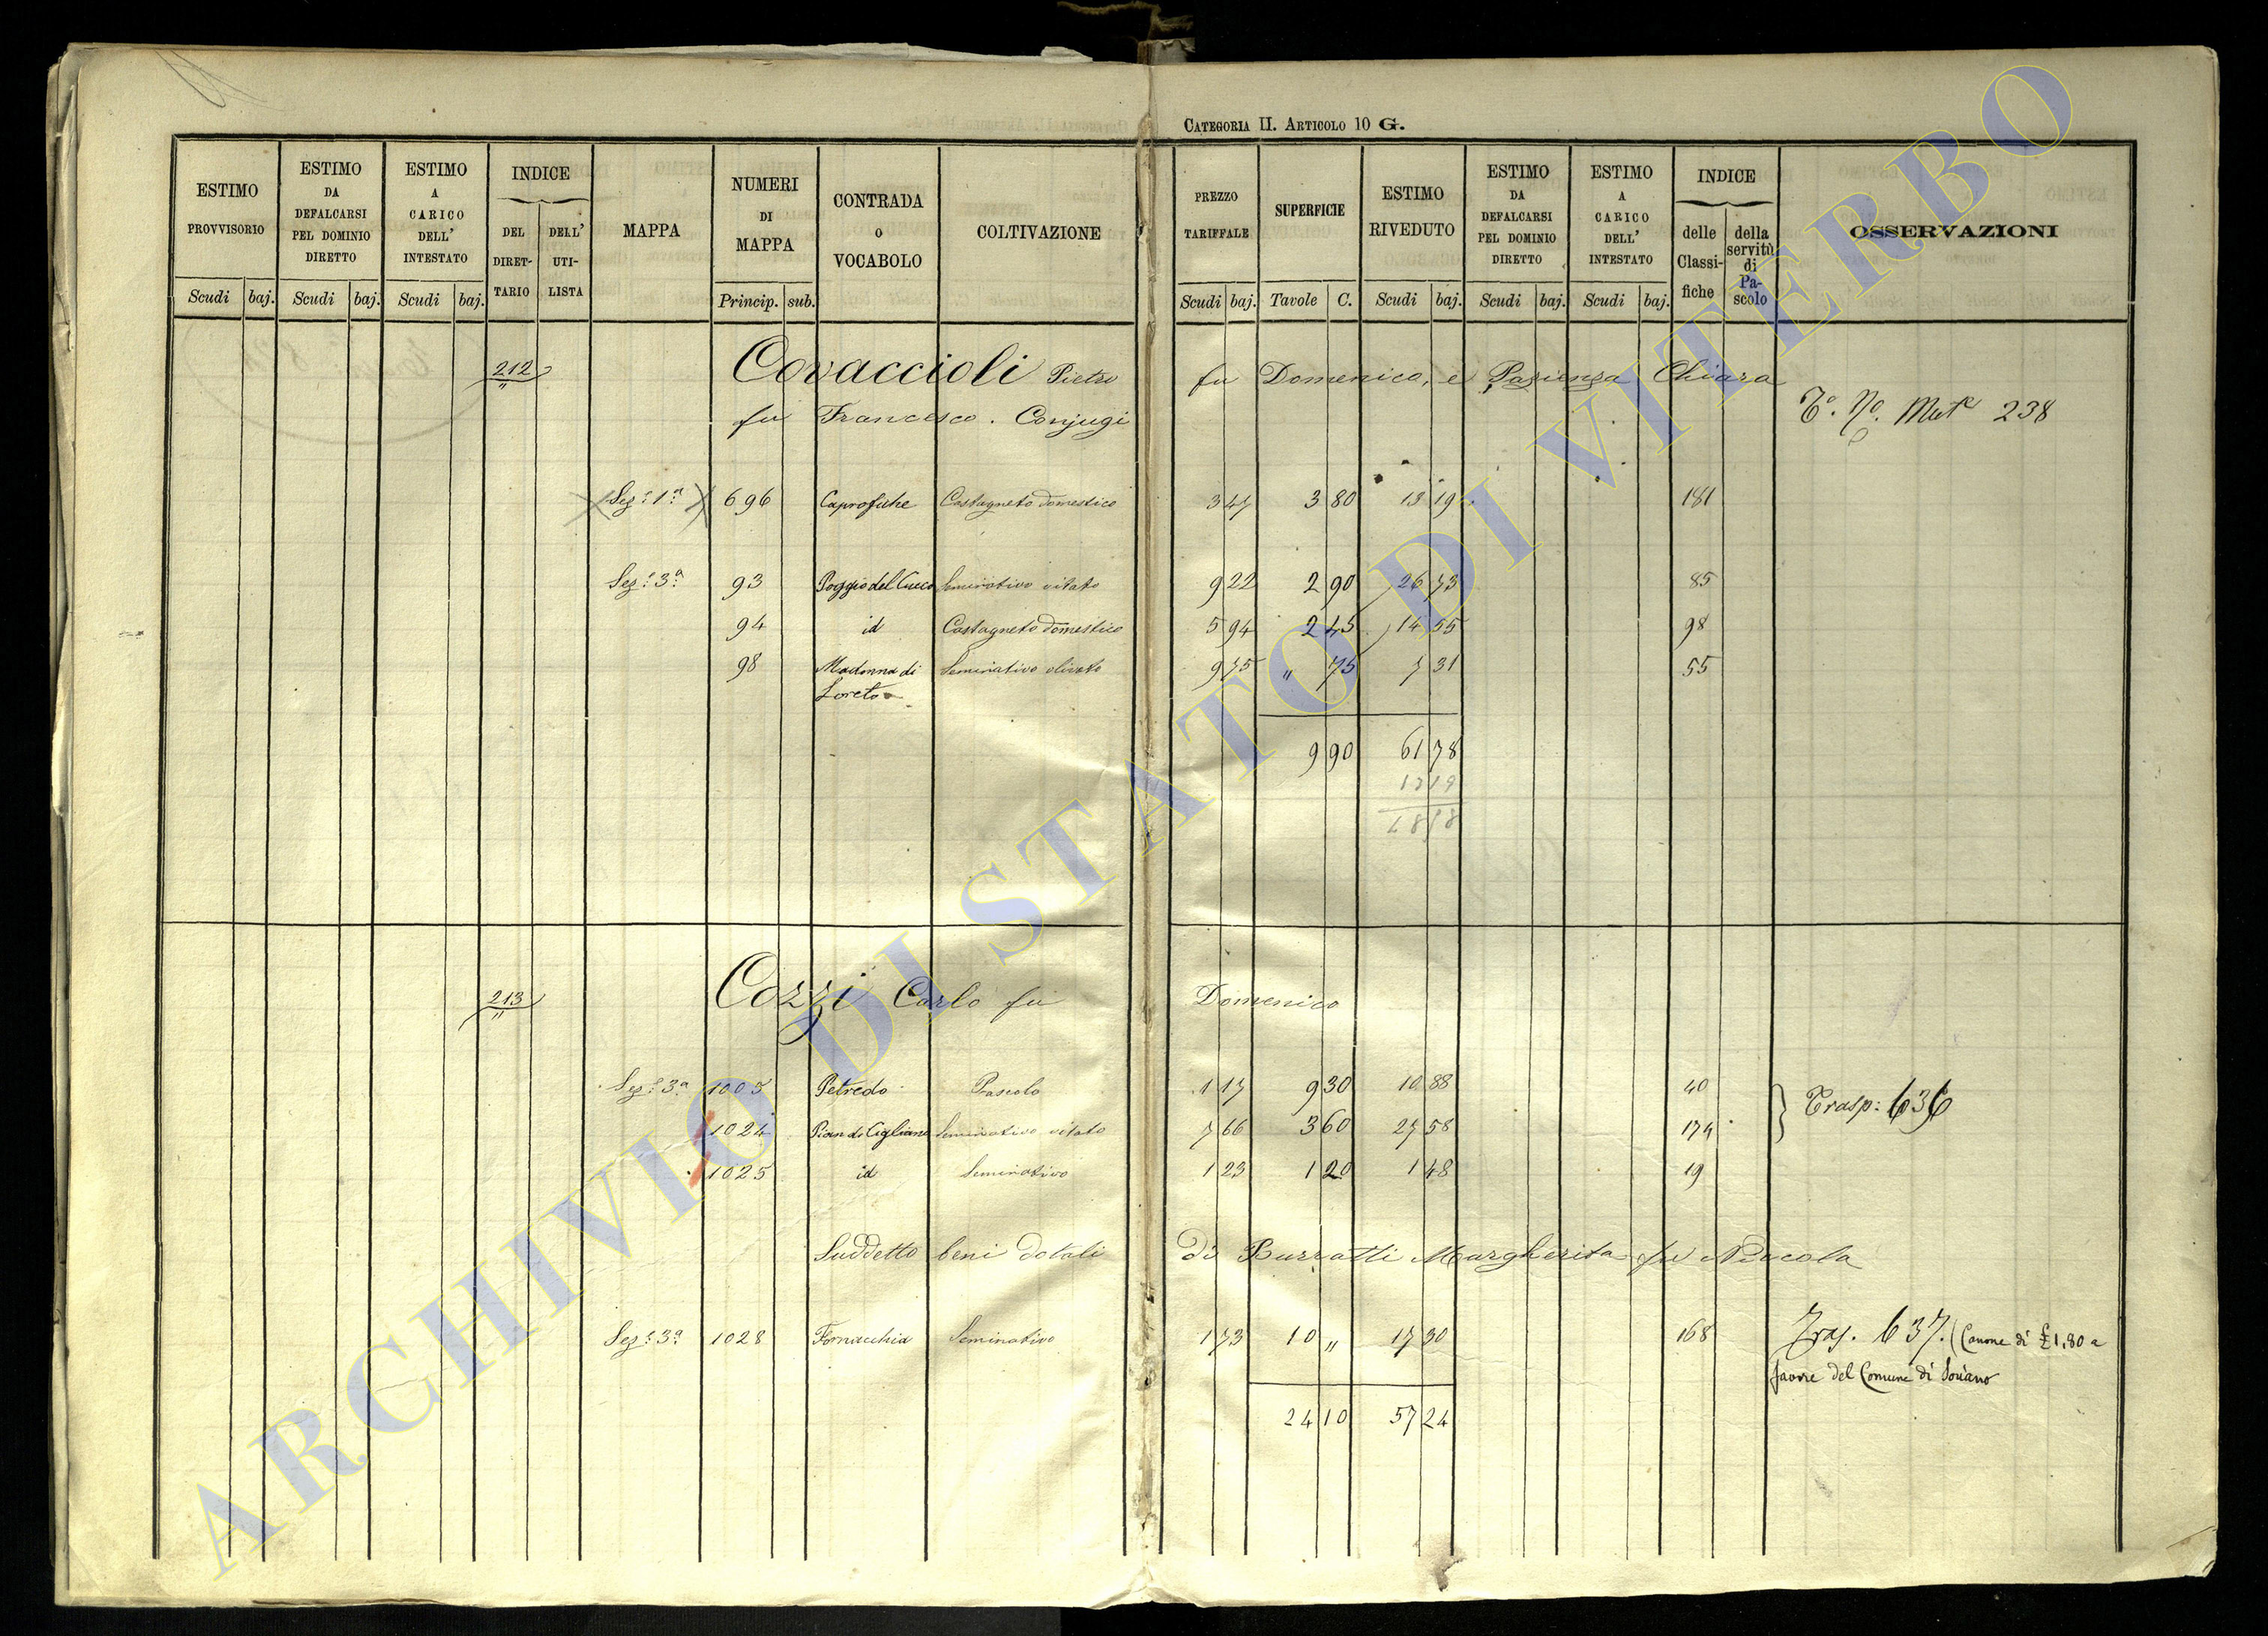 CATEGORIA II. ARTICOLO 10 G.
ESTIMO PROVVISORIO Scudi baj.
ESTIMO DA DEFALCARSI PEL DOMINIO DIRETTO Scudi baj.
ESTIMO A CARICO DELL' INTESTATO Scudi baj.
INDICE DEL DIRET-TARIO DELL' UTI-LISTA
MAPPA
NUMERI DI MAPPA Princip. sub.
CONTRADA O VOCABOLO
COLTIVAZIONE
PREZZO TARIFFALE Scudi baj.
SUPERFICIE Tavole C.
ESTIMO RIVEDUTO Scudi baj.
ESTIMO DA DEFALCARSI PEL DOMINIO DIRETTO Scudi baj.
ESTIMO A CARICO DELL' INTESTATO Scudi baj.
INDICE delle Classi-fiche della servitù di Pa-scolo
OSSERVAZIONI
212 Covaccioli Pietro fu Domenico, e Pazienza Chiara
fu Francesco. Conjugi
Mut.e 238
Sez.e 1.a 696 Castagneto domestico 3 47 3 80 13 19 181
Sez.e 3.a 93 Poggio del Cucco Seminativo vitato 9 22 2 90 26 73 85
94 id Castagneto domestico 5 94 2 45 14 55 98
98 Madonna di Loreto Seminativo olivato 9 75 " 75 7 31 55
9 90 61 78
13 19
213 Cozzi Carlo fu Domenico
Sez.e 3.a 1005 Petredo Pascolo 1 17 9 30 10 88 40
Trasp: 636
1024 Pian di Cigliano Seminativo vitato 7 66 3 60 27 58 174
1025 id Seminativo 1 23 1 20 1 48 19
Suddetto beni dotali di Burratti Margherita fu Niccola
Sez.e 3.a 1028 Fornacchia Seminativo 1 73 10 " 17 30 168 Tras. 637. (Canone di £ 1,80 a
favore del Comune di Soriano
24 10 57 24
ARCHIVIO DI STATO DI VITERBO